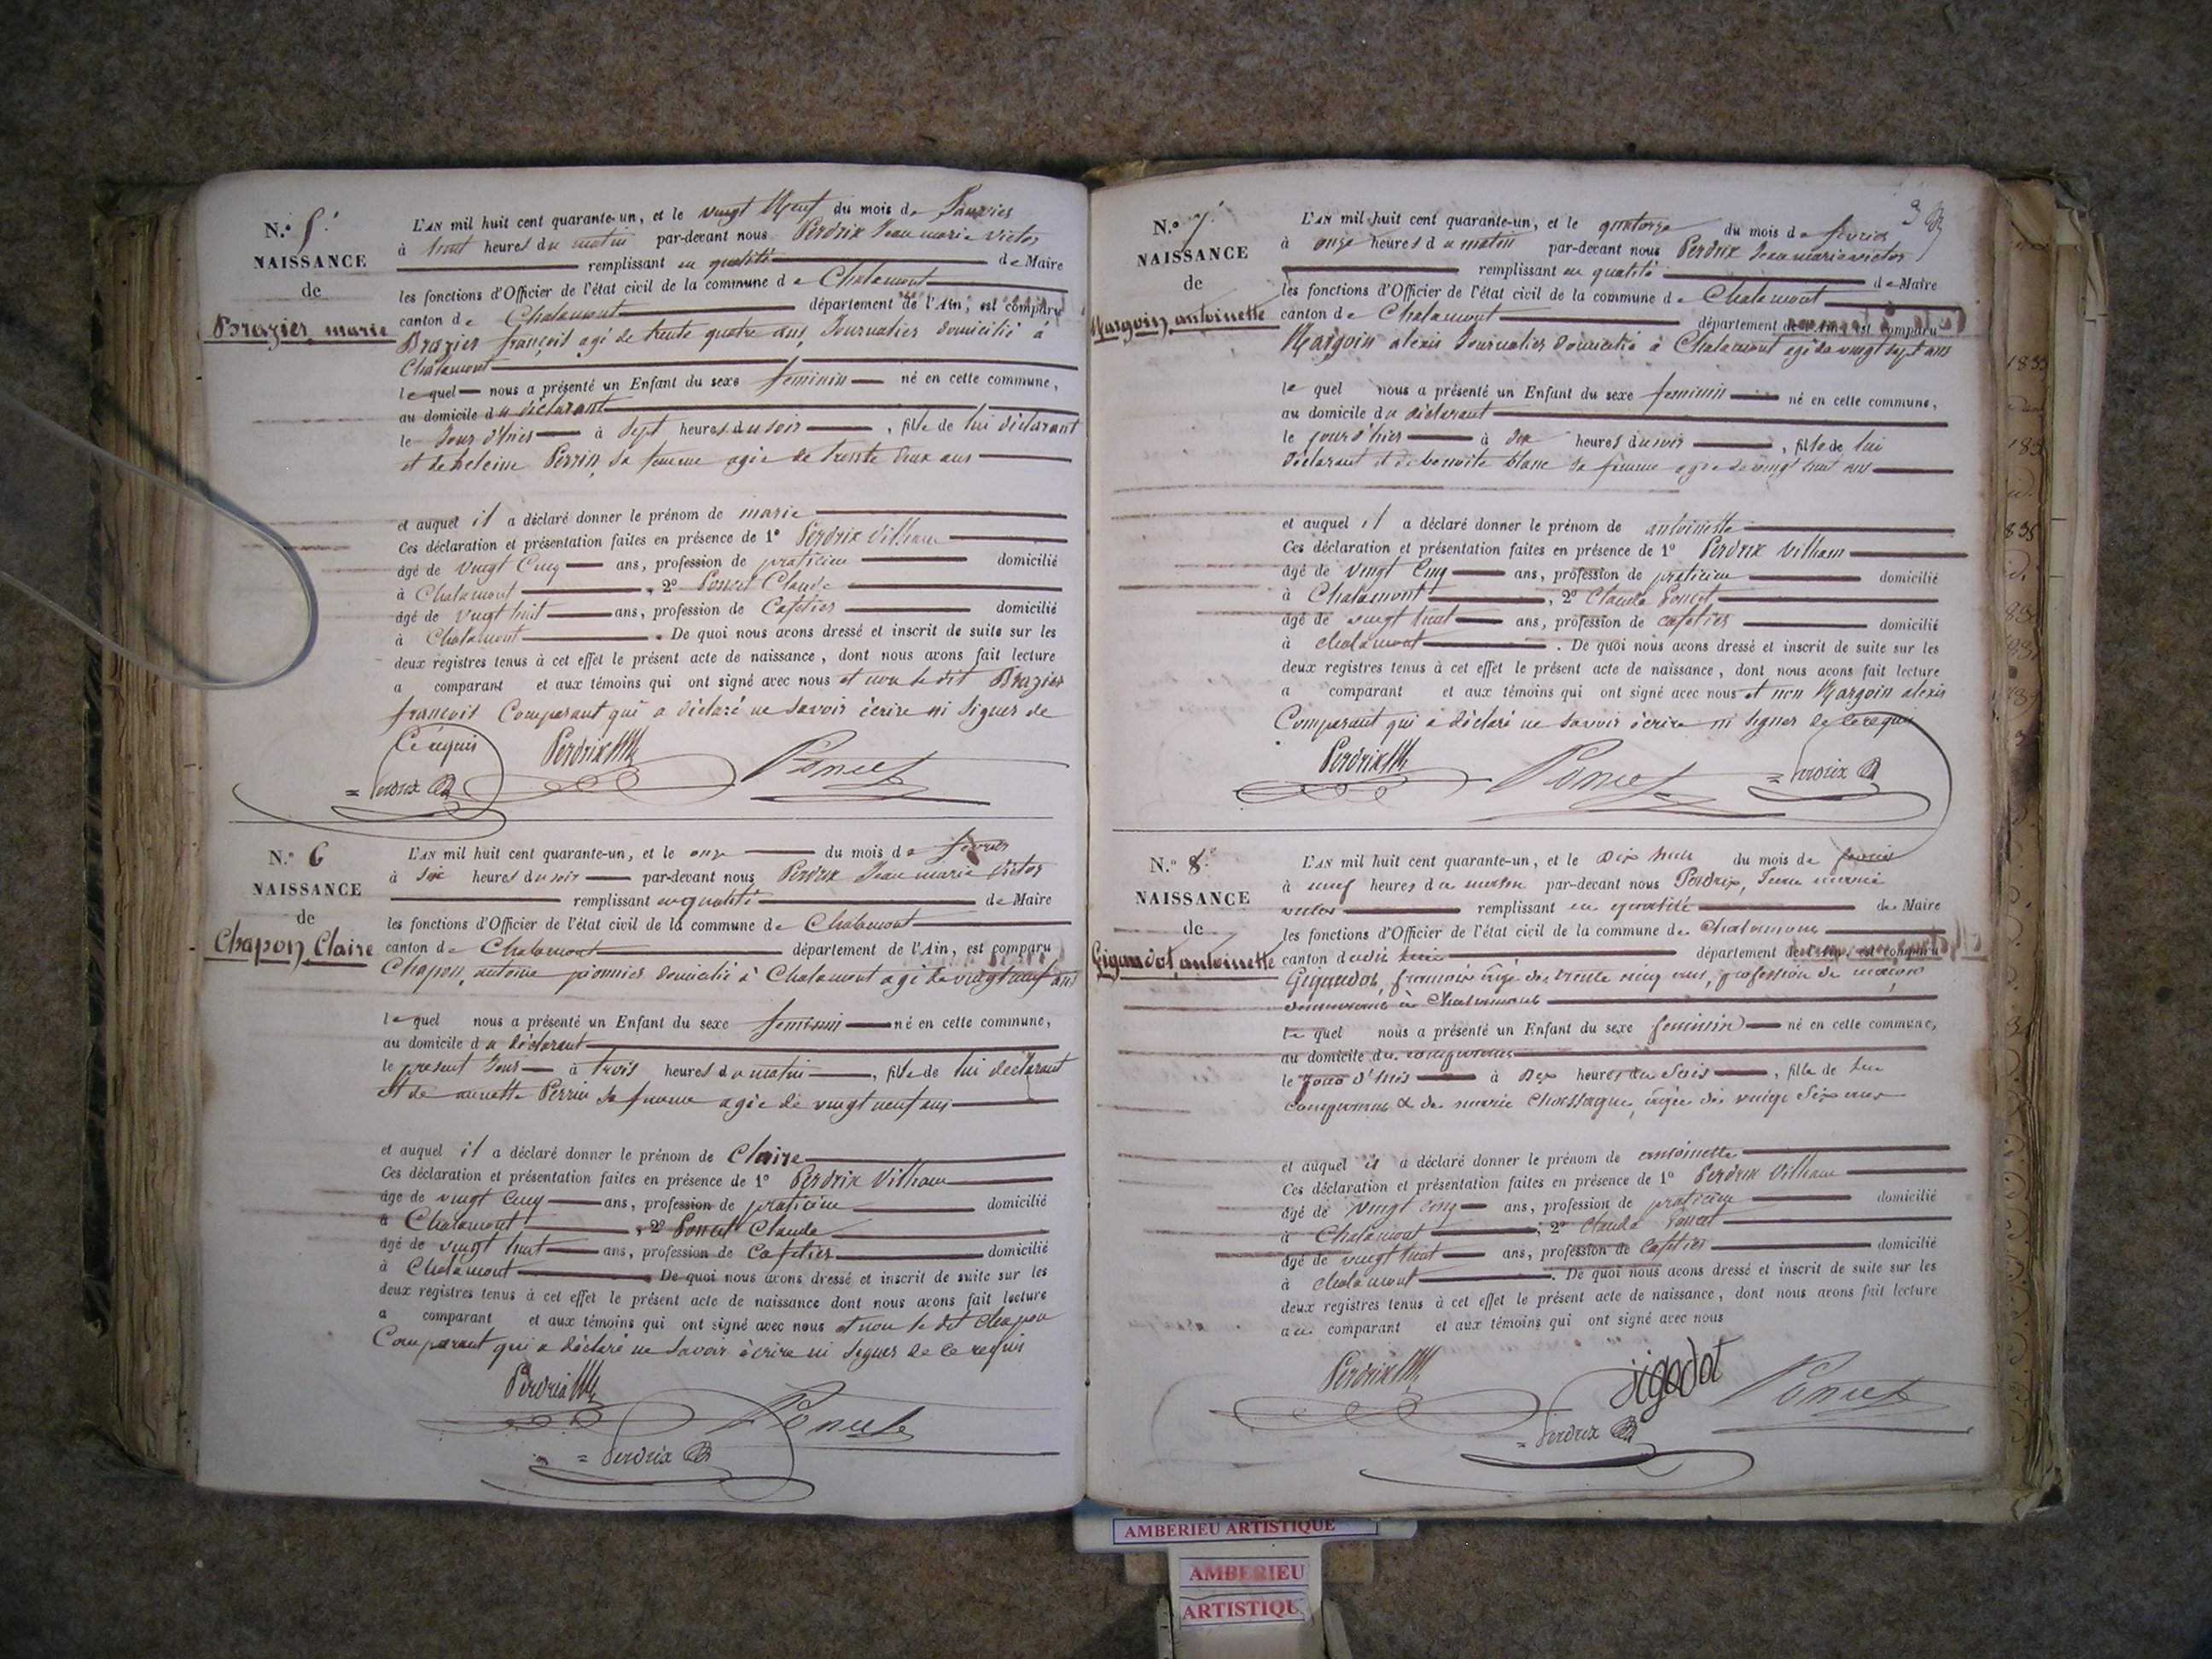 N.° 5.
NAISSANCE
de
Brazier marie
L'AN mil huit cent quarante-un, et le vingt Neuf du mois de Janvier
à huit heures du matin par-devant nous Perdrix Jean marie victor
remplissant en qualité de Maire
les fonctions d'Officier de l'état civil de la commune de Chalamont
canton de Chalamont département de l'Ain, est comparu
Brazier françois agé de trente quatre ans, Journalier domicilié à
Chalamont
lequel nous a présenté un Enfant du sexe feminin né en cette commune,
au domicile du déclarant
le Jour d'hier à sept heures du soir, fille de lui déclarant
et de heleine Perrin sa femme agée de trente deux ans
et auquel il a déclaré donner le prénom de marie
Ces déclaration et présentation faites en présence de 1° Perdrix Villiam
âgé de vingt Cinq ans, profession de praticien domicilié
à Chalamont, 2° Poncet Claude
âgé de vingt huit ans, profession de Cafetier domicilié
à Chalamont. De quoi nous avons dressé et inscrit de suite sur les
deux registres tenus à cet effet le présent acte de naissance, dont nous avons fait lecture
a comparant et aux témoins qui ont signé avec nous et non le dit Brazier
françois Comparant qui a déclaré ne savoir écrire ni signer de
Ce requis
Perdrix Poncet
Perdrix
N.° 6
NAISSANCE
de
Chapon Claire
L'AN mil huit cent quarante-un, et le onze du mois de février
à six heures du soir par-devant nous Perdrix Jean marie victor
remplissant en qualité de Maire
les fonctions d'Officier de l'état civil de la commune de Chalamont
canton de Chalamont département de l'Ain, est comparu
Chapon, antoine pionnier domicilié à Chalamont agé de vingt neuf ans
lequel nous a présenté un Enfant du sexe feminin né en cette commune,
au domicile du déclarant
le present Jour à trois heures du matin, fille de lui déclarant
et de annette Perrin sa femme agée de vingt neuf ans
et auquel il a déclaré donner le prénom de Claire
Ces déclaration et présentation faites en présence de 1° Perdrix Villiam
âgé de vingt Cinq ans, profession de praticien domicilié
à Chalamont, 2° Poncet Claude
âgé de vingt huit ans, profession de Cafetier domicilié
à Chalamont De quoi nous avons dressé et inscrit de suite sur les
deux registres tenus à cet effet le présent acte de naissance dont nous avons fait lecture
a comparant et aux témoins qui ont signé avec nous et non le dit Chapon
Comparant qui a déclaré ne savoir écrire ni signer de ce requis
Perdrix Poncet
Perdrix
3
N.° 7
NAISSANCE
de
Margoin antoinette
L'AN mil huit cent quarante-un, et le quatorze du mois de février
à onze heures du matin par-devant nous Perdrix Jean marie victor
remplissant en qualité de Maire
les fonctions d'Officier de l'état civil de la commune de Chalamont
canton de Chalamont département de l'Ain, est comparu
Margoin alexis Journalier domicilié à Chalamont agé de vingt sept ans
lequel nous a présenté un Enfant du sexe feminin né en cette commune,
au domicile du déclarant
le jour d'hier à dix heures du soir, fille de lui
déclarant et de benoite blanc sa femme agée de vingt huit ans
et auquel il a déclaré donner le prénom de antoinette
Ces déclaration et présentation faites en présence de 1° Perdrix Villiam
âgé de vingt Cinq ans, profession de praticien domicilié
à Chalamont, 2° Claude Poncet
âgé de vingt huit ans, profession de cafetier domicilié
à chalamont. De quoi nous avons dressé et inscrit de suite sur les
deux registres tenus à cet effet le présent acte de naissance, dont nous avons fait lecture
a comparant et aux témoins qui ont signé avec nous et non Margoin alexis
Comparant qui a déclaré ne savoir écrire ni signer de ce requis
Perdrix Poncet Perdrix
N.° 8
NAISSANCE
de
Gigandot antoinette
L'AN mil huit cent quarante-un, et le Dix huit du mois de février
à neuf heures du matin par-devant nous Perdrix, Jean marie
victor remplissant en qualité de Maire
les fonctions d'Officier de l'état civil de la commune de Chalamont
canton dudit lieu département de l'Ain, est comparu
Gigandot, françois âgé de trente cinq ans, profession de maçon
demeurant à Chalamont
lequel nous a présenté un Enfant du sexe feminin né en cette commune,
au domicile du comparant
le jour d'hier à Dix heures du soir, fille de lui
comparant & de marie Chassagne, âgée de vingt six ans
et auquel il a déclaré donner le prénom de antoinette
Ces déclaration et présentation faites en présence de 1° Perdrix Villiam
âgé de vingt cinq ans, profession de praticien domicilié
à Chalamont, 2° Claude Poncet
âgé de vingt huit ans, profession de cafetier domicilié
à chalamont. De quoi nous avons dressé et inscrit de suite sur les
deux registres tenus à cet effet le présent acte de naissance, dont nous avons fait lecture
au comparant et aux témoins qui ont signé avec nous
Perdrix jigodot Poncet
Perdrix
AMBERIEU ARTISTIQUE
AMBERIEU
ARTISTIQU